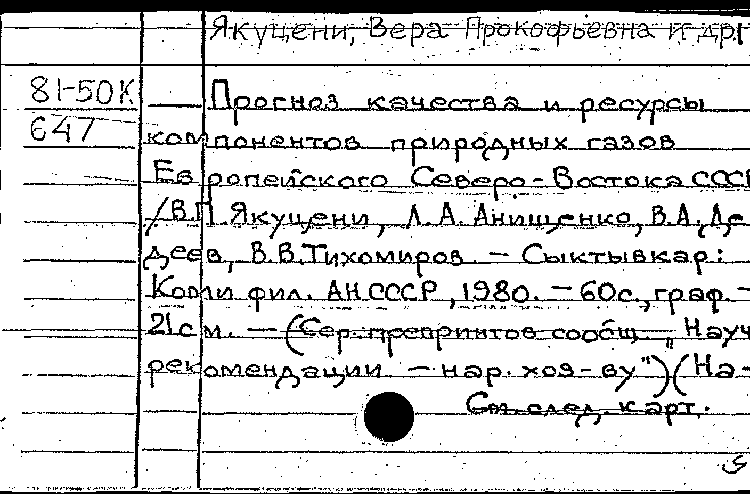 Якуцени, Вера Прокофьевна и др.
81-50К
647
Прогноз качества и ресурсы
компонентов природных газов
Европейского Северо-Востока СССР
/В.П. Якуцени, Л.А. Анищенко, В.А. Де
деев, В.В. Тихомиров – Сыктывкар:
Коми фил. АН СССР, 1980. – 60с., граф. –
21см. – (Сер. препринтов сообщ. „Науч
рекомендации – нар. хоз-ву")(На-
См. след. карт.